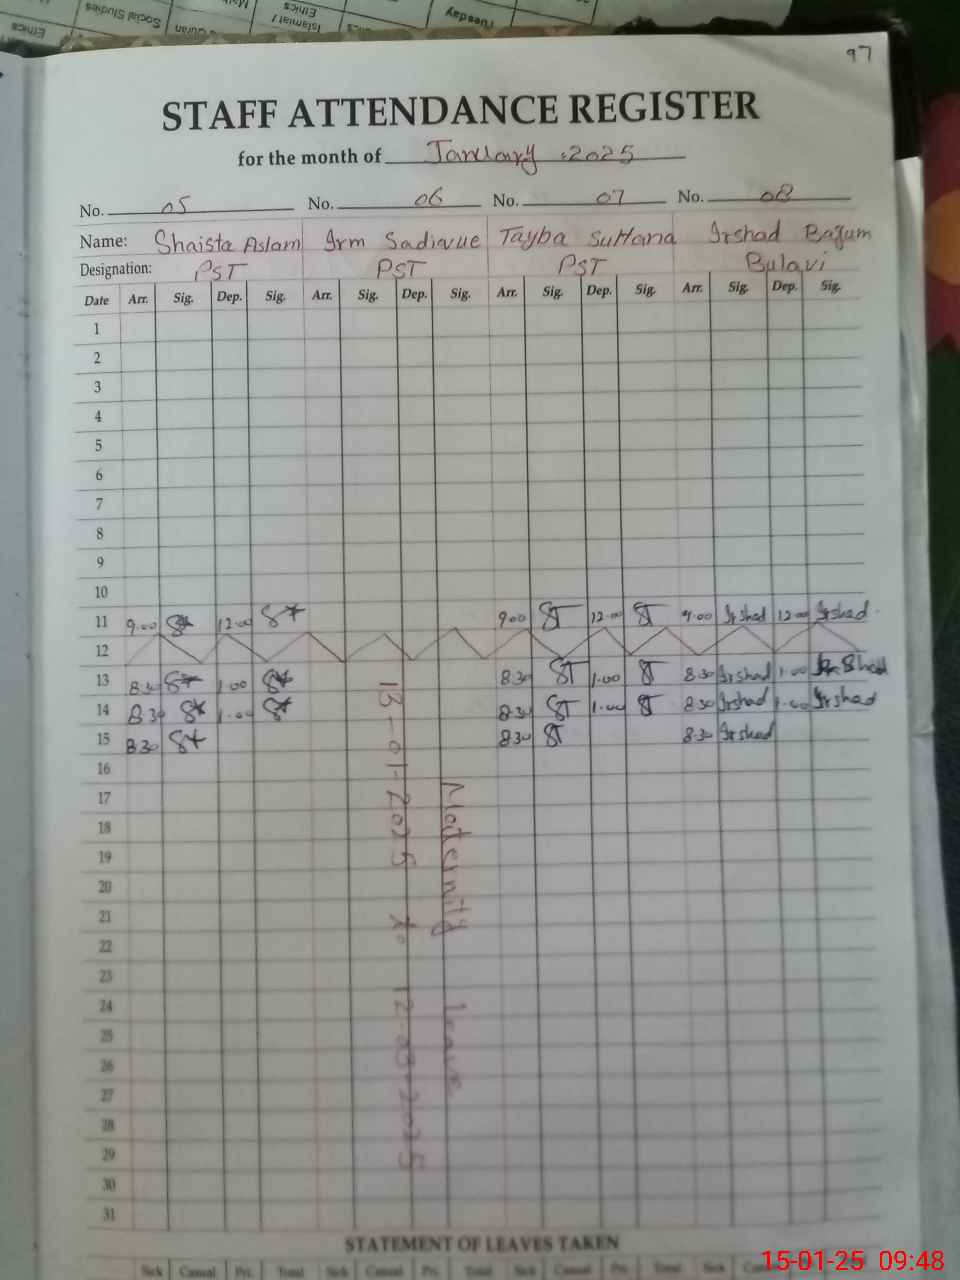 Ethics
Social Studies
Quran
Islamiat /
Ethics
Tuesday
97
STAFF ATTENDANCE REGISTER
for the month of January .2025
No. 05 No. 06 No. 07 No. 08
Name: Shaista Aslam Irm Sadique Tayba Sultana Irshad Bajum
Designation: PST PST PST Bulavi
Date Arr. Sig. Dep. Sig. Arr. Sig. Dep. Sig. Arr. Sig. Dep. Sig. Arr. Sig. Dep. Sig.
1
2
3
4
5
6
7
8
9
10
11 9.00 12.00 9.00 ST 12.00 ST 9.00 Irshad 12.00 Irshad
12
13 8.30 1.00 8.30 ST 1.00 ST 8.30 Irshad 1.00 Irshad
14 8.30 1.00 8.30 ST 1.00 ST 8.30 Irshad 1.00 Irshad
15 8.30 8.30 ST 8.30 Irshad
16
17
18
19
20
21
22
23
24
25
26
27
28
29
30
31
Maternity leave
13-01-2025 to 12-03-2025
STATEMENT OF LEAVES TAKEN
Sick Casual Pri. Total Sick Casual Pri. Total Sick Casual Pri. Total Sick
15-01-25 09:48